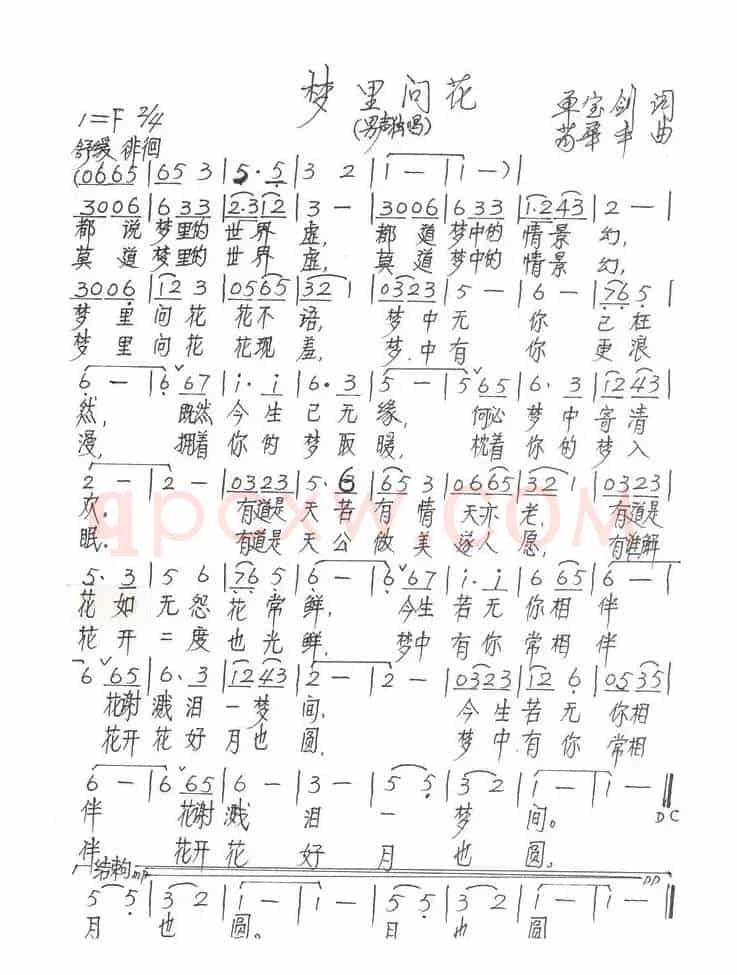 梦里问花
(男声独唱)
1=F 2/4
覃宝剑 词
苗华丰 曲
舒缓 徘徊
(0665 | 65 3 | 5·5 | 3 2 | 1 — | 1 —) |
3006 | 6 33 | 2·312 | 3 — | 3006 | 6 33 | 1·243 | 2 — |
都说梦里的世界虚, 都道梦中的情景幻,
莫道梦里的世界虚, 莫道梦中的情景幻,
3006 | 12 3 | 0565 | 32 1 | 0323 | 5 — | 6 — | 76 5 |
梦里问花花不语, 梦中无你已枉
梦里问花花现羞, 梦中有你更浪
6 — | 6 67 | i· i | 6· 3 | 5 — | 5 65 | 6· 3 | 1243 |
然, 既然今生已无缘, 何必梦中寄清
漫, 拥着你的梦取暖, 枕着你的梦入
2 — | 2 — | 0323 | 5· 6 | 65 3 | 0665 | 32 1 | 0323 |
欢。 有道是天若有情天亦老, 有道是
眠。 有道是天公做美遂人愿, 有谁解
5· 3 | 5 6 | 76 5 | 6 — | 6 67 | i· i | 6 65 | 6 — |
花如无怨花常鲜, 今生若无你相伴
花开二度也光鲜, 梦中有你常相伴
6 65 | 6· 3 | 1243 | 2 — | 2 — | 0323 | 12 6 | 0535 |
花谢溅泪一梦间, 今生若无你相
花开花好月也圆, 梦中有你常相
6 — | 6 65 | 6 — | 3 — | 5 5 | 3 2 | 1 — | 1 — ‖
伴 花谢溅泪一梦间。
DC
伴 花开花好月也圆。
结构 mp
pp
5 5 | 3 2 | 1 — | 1 — | 5 5 | 3 2 | 1 — | 1 — ‖
月也圆。 月也圆
qpcxw.COM